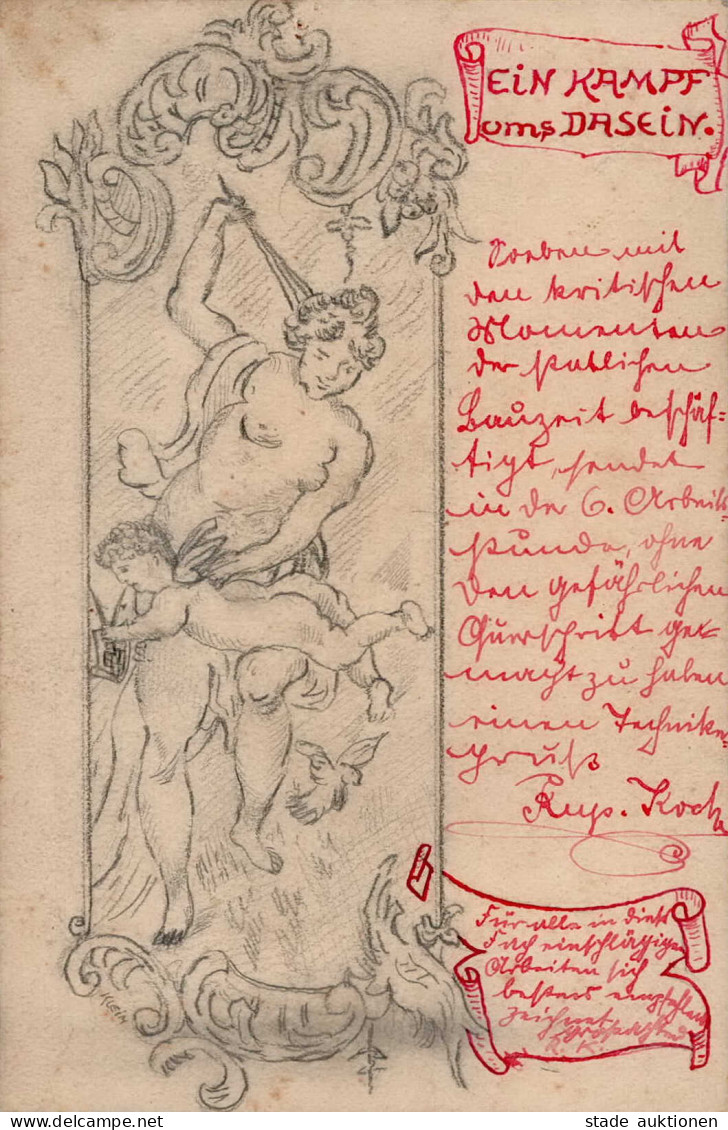 EIN KAMPF
ums DASEIN.
Soeben mit
den kritischen
Momenten
der
Bauzeit beschäf-
tigt, sendet
in der 6. Arbeits-
stunde, ohne
den gefährlichen
Querschritt ge-
macht zu haben
einen Techniker-
gruß
Rup. Koch
Für alle in dies
Fach einschlägigen
Arbeiten sich
bestens empfehlend
zeichnet
R. K.
Klein
delcampe.net
stade auktionen